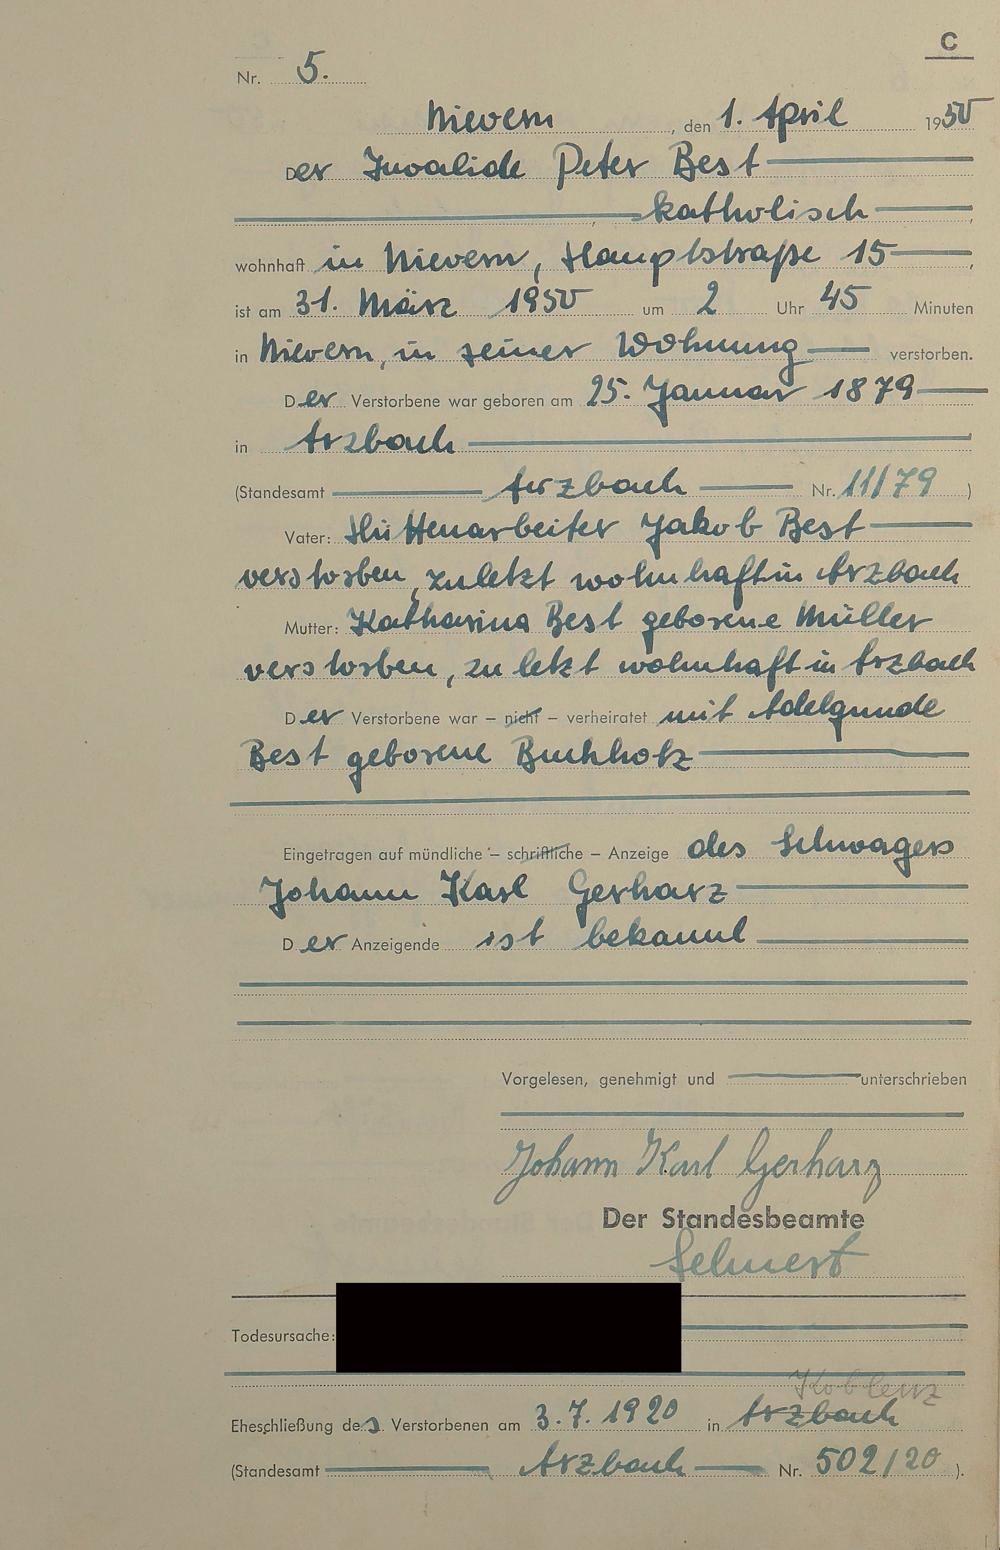 C
Nr. 5.
Nievern, den 1. April 1950
Der Invalide Peter Best
katholisch,
wohnhaft in Nievern, Hauptstraße 15,
ist am 31. März 1950 um 2 Uhr 45 Minuten
in Nievern, in seiner Wohnung verstorben.
Der Verstorbene war geboren am 25. Januar 1879
in Arzbach
(Standesamt Arzbach Nr. 11/79)
Vater: Hüttenarbeiter Jakob Best
verstorben, zuletzt wohnhaft in Arzbach
Mutter: Katharina Best geborene Müller
verstorben, zuletzt wohnhaft in Arzbach
Der Verstorbene war – nicht – verheiratet mit Adelgunde
Best geborene Buchholz
Eingetragen auf mündliche – schriftliche – Anzeige des Schwagers
Johann Karl Gerharz
Der Anzeigende ist bekannt
Vorgelesen, genehmigt und unterschrieben
Johann Karl Gerharz
Der Standesbeamte
Todesursache:
Koblenz
Eheschließung des Verstorbenen am 3.7.1920 in Arzbach
(Standesamt Arzbach Nr. 502/20).